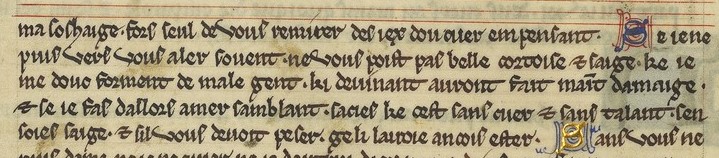 ma soshaige · fors seul de vous remirer des iex dou cuer em pensant · S e ie ne
puis vers vous aler souent · ne vous poist pas belle cortoise & saige · ke ie
me douc forment de male gent · ki deuinant auront fait maīt damaige ·
& se ie fas daillors amer samblant · sacies ke cest sans cuer & sans talant · sen
soies saige · & sil vous deuoit peser · ge li lairoie ancois ester · S ans vous ne